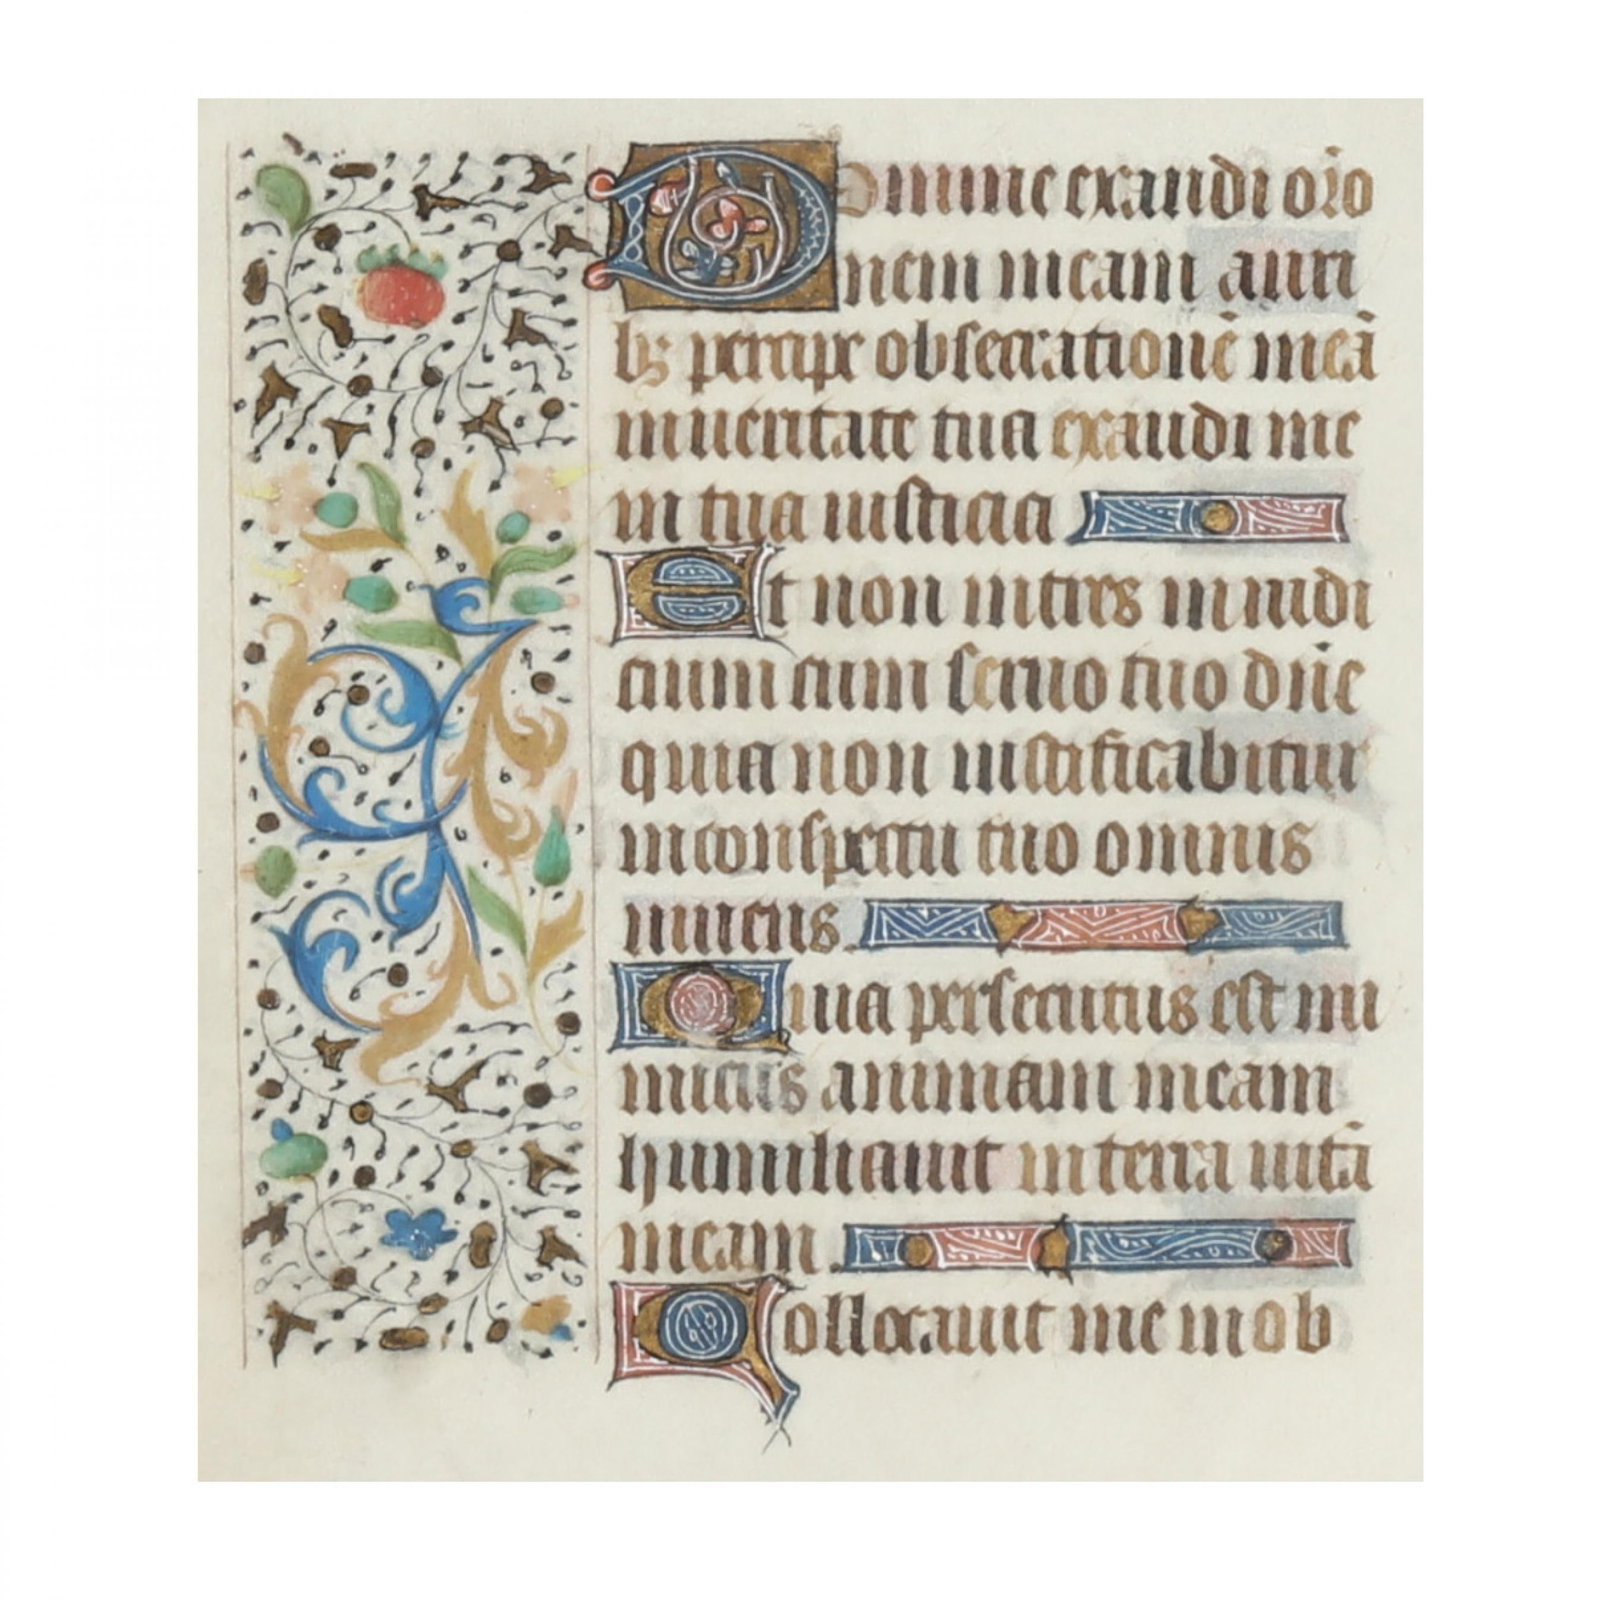 Domine exaudi oro
nem meam auri
bꝫ percipe obsecrationē meā
in ueritate tua exaudi me
in tua iusticia
Et non intres in iudi
cium cum seruo tuo dn̄e
quia non iustificabitur
in conspectu tuo omnis
uiuens.
Quia persecutus est ini
micus animam meam
humiliauit in terra uitā
meam.
Collocauit me in ob